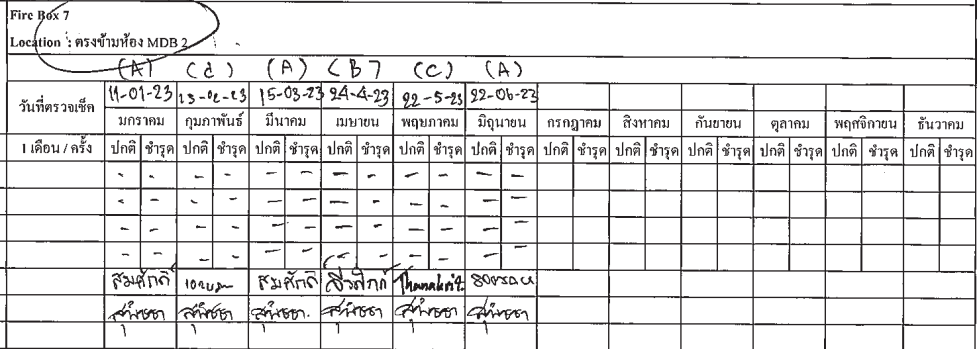 Fire Box 7
Location : ตรงข้ามห้อง MDB 2
(A) (d) (A) (B) (C) (A)
วันที่ตรวจเช็ค 11-01-23 13-02-23 15-03-23 24-4-23 22-5-23 22-06-23
มกราคม กุมภาพันธ์ มีนาคม เมษายน พฤษภาคม มิถุนายน กรกฎาคม สิงหาคม กันยายน ตุลาคม พฤศจิกายน ธันวาคม
1 เดือน / ครั้ง ปกติ ชำรุด ปกติ ชำรุด ปกติ ชำรุด ปกติ ชำรุด ปกติ ชำรุด ปกติ ชำรุด ปกติ ชำรุด ปกติ ชำรุด ปกติ ชำรุด ปกติ ชำรุด ปกติ ชำรุด ปกติ ชำรุด
- - - - - - - - - - - -
- - - - - - - - - - - -
- - - - - - - - - - - -
- - - - - - - - - - - -
สมศักดิ์ สมศักดิ์ Thanakrit